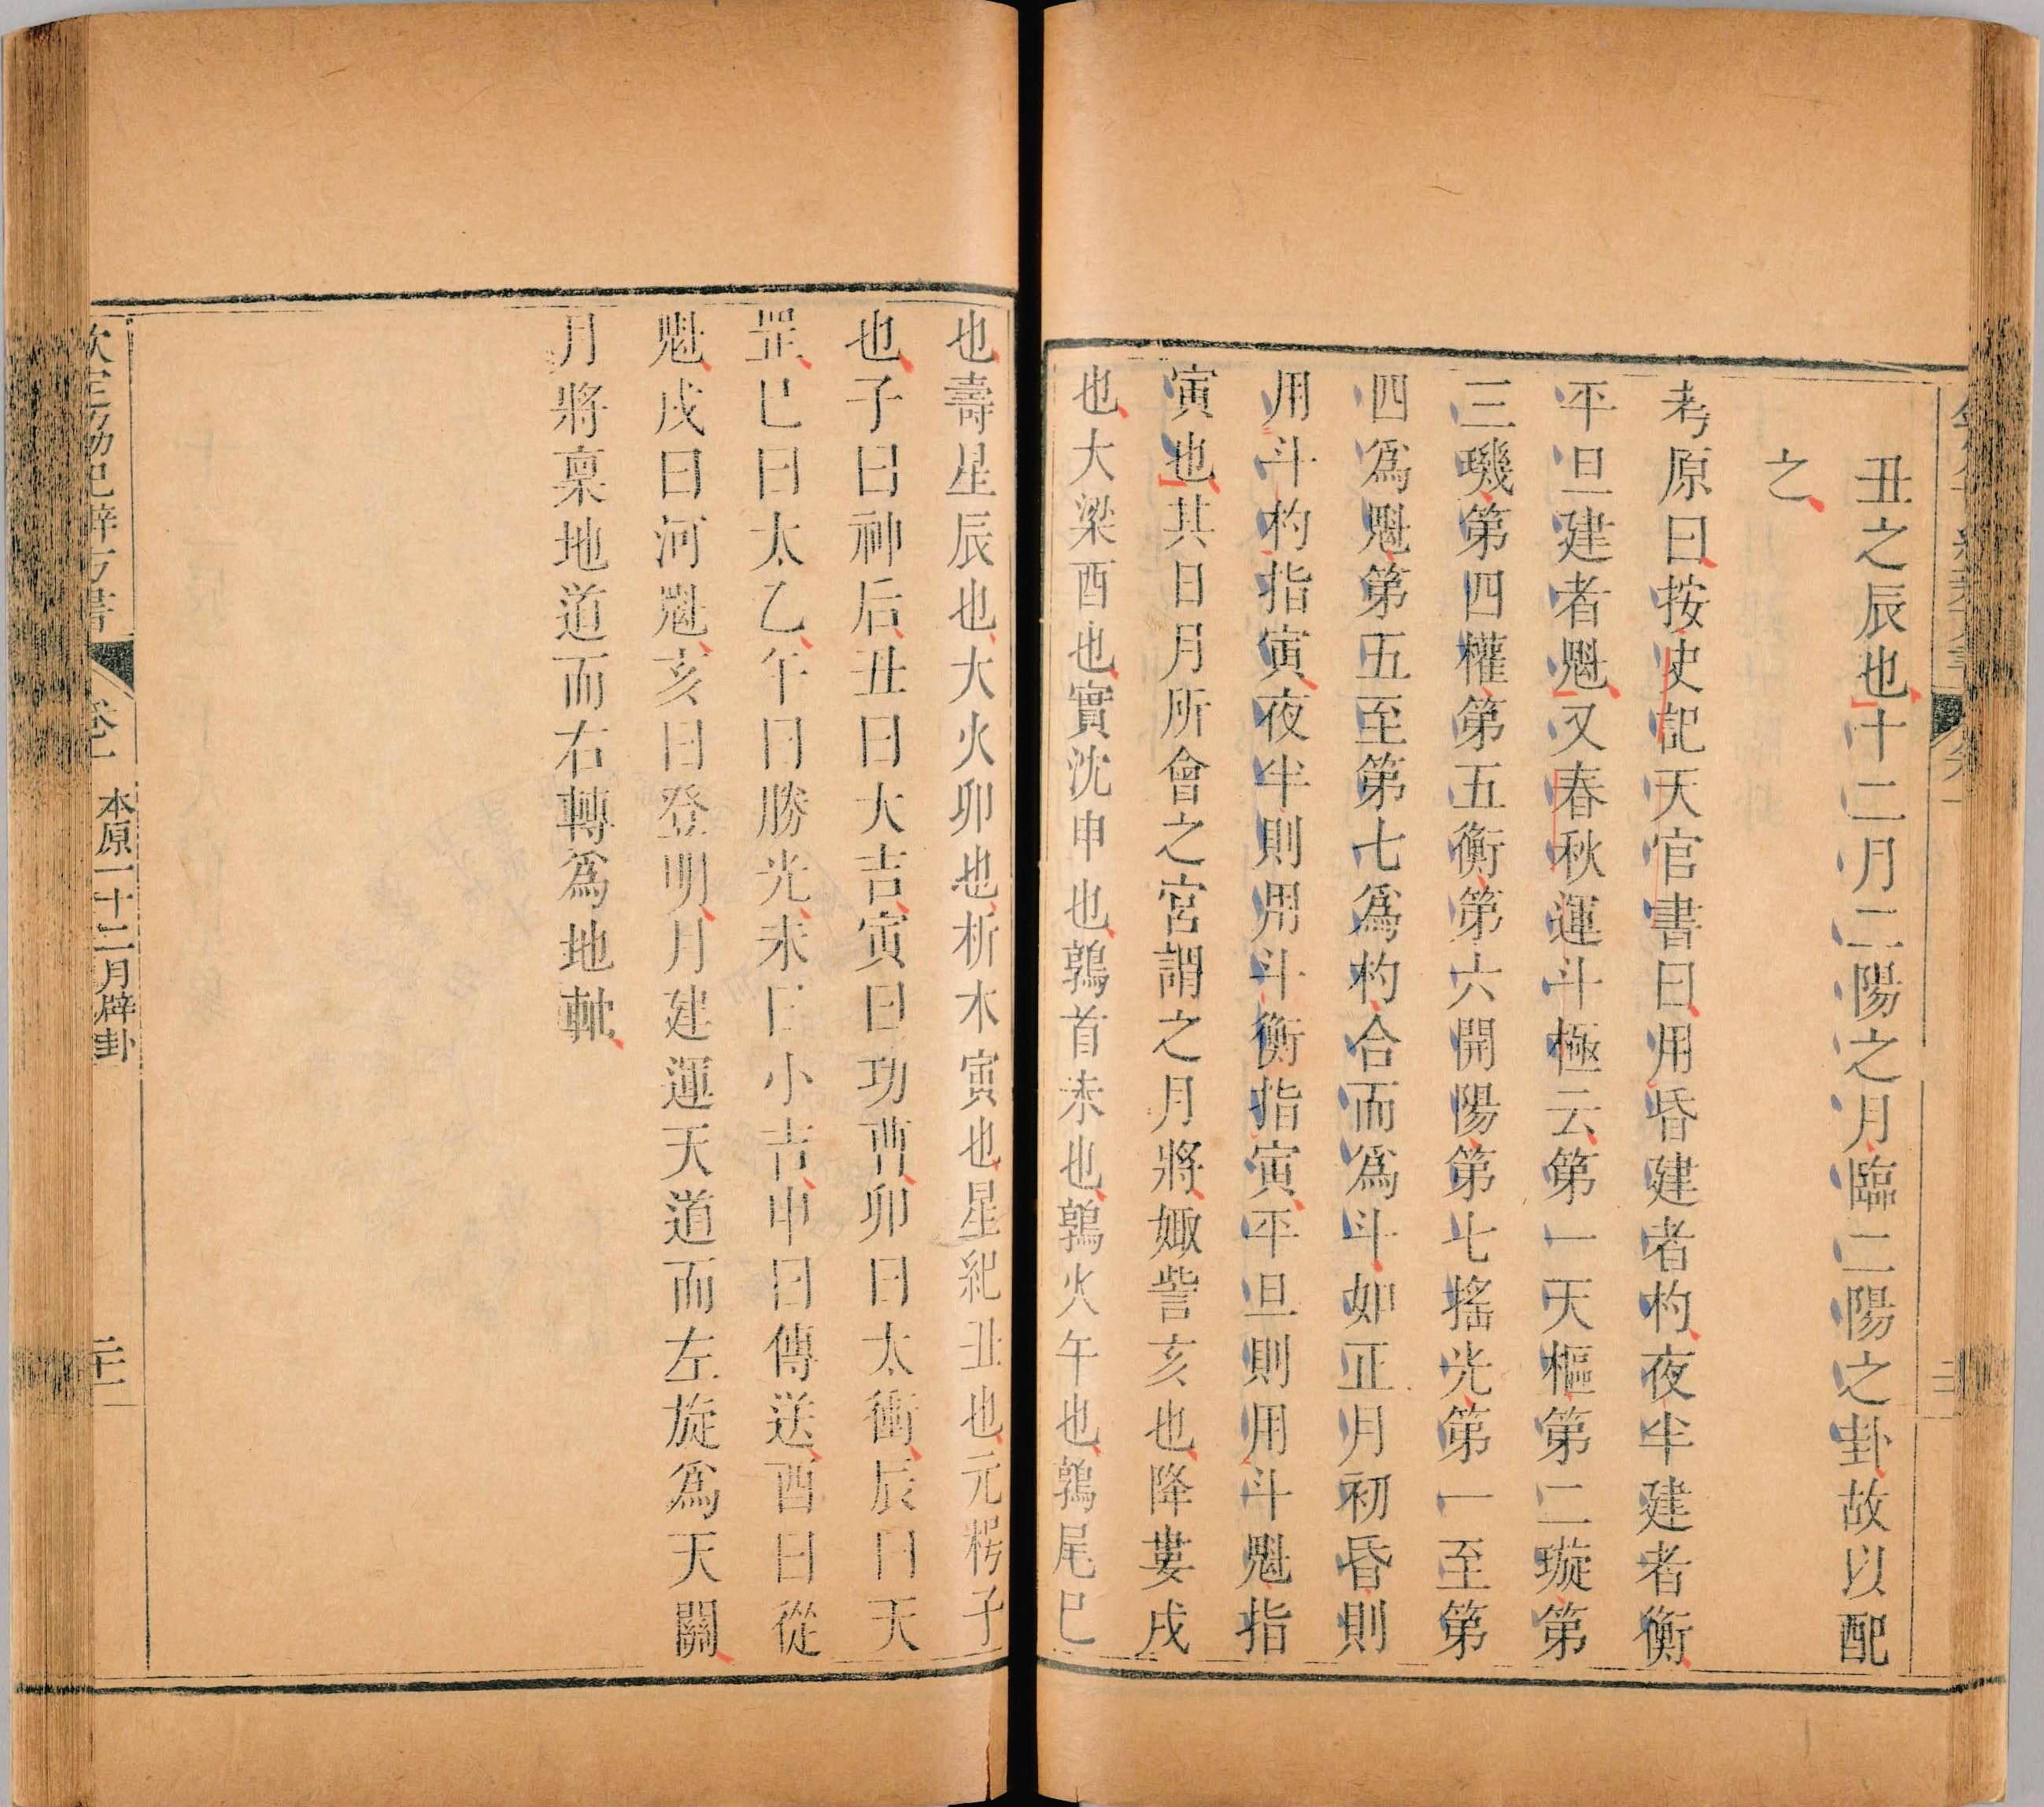 丑之辰也十二月二陽之月臨二陽之卦故以配
之
考原曰按史記天官書曰用昏建者杓夜半建者衡
平旦建者魁又春秋運斗極云第一天樞第二璇第
三璣第四權第五衡第六開陽第七搖光第一至第
四爲魁第五至第七爲杓合而爲斗如正月初昏則
用斗杓指寅夜半則用斗衡指寅平旦則用斗魁指
寅也其日月所會之宮謂之月將娵訾亥也降婁戌
也大梁酉也實沈申也鶉首未也鶉火午也鶉尾巳
也壽星辰也大火卯也析木寅也星紀丑也元枵子
也子曰神后丑曰大吉寅曰功曹卯曰太衝辰曰天
罡巳曰太乙午曰勝光未曰小吉申曰傳送酉曰從
魁戌曰河魁亥曰登明月建運天道而左旋爲天關
月將稟地道而右轉爲地軸
欽定協紀辨方書
卷一
本原一十二月辟卦